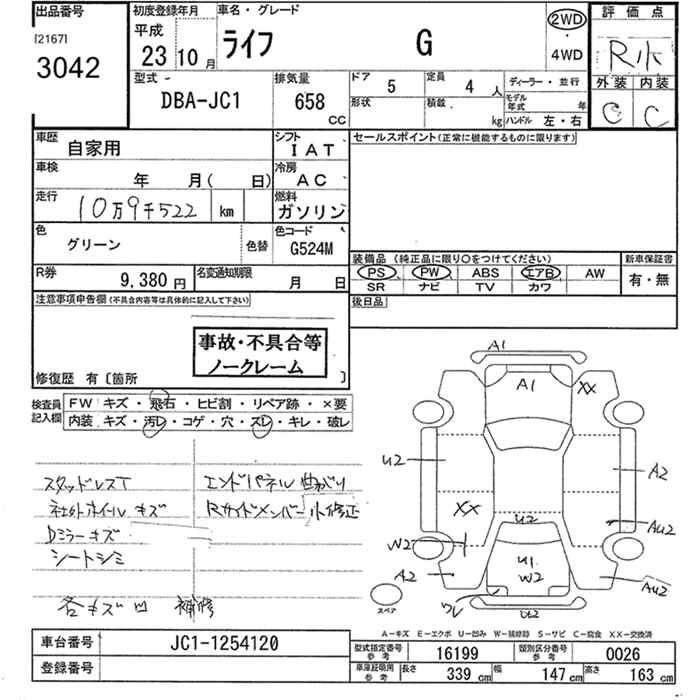 出品番号 初度登録年月 車名・グレード 2WD 評価点
[2167] 平成
3042 23 10月 ライフ G 4WD R小
型式 排気量 ドア 5 定員 4人 ディーラー・並行 外装 内装
DBA-JC1 658 cc 形状 積載 kg モデル年式 年 C C
ハンドル 左・右
車歴 自家用 シフト IAT セールスポイント(正常に機能するものに限ります)
車検 年 月( 日) 冷房 AC
走行 10万9千522 km 燃料 ガソリン
色 グリーン 色替 色コード G524M
装備品 (純正品に限り○をつけてください) 新車保証書
PS PW ABS エアB AW 有・無
SR ナビ TV カワ
R券 9,380円 名変通知期限 月 日
後日品
注意事項申告欄(不具合内容等は具体的に記入して下さい)
事故・不具合等
ノークレーム
修復歴 有 〔箇所 〕
検査員記入欄 FW キズ・飛石・ヒビ割・リペア跡・×要
内装 キズ・汚レ・コゲ・穴・スレ・キレ・破レ
スタッドレスT エンドパネル 曲がり
社外ホイール キズ Rサイドメンバー 小修正
Dミラーキズ
シートシミ
各キズ凹 補修
A1
A1
XX
U2
A2
XX
U2
AU2
W2
A2
U1
W2
AU2
ワレ
U2
スペア
A-キズ E-エクボ U-凹み W-補修跡 S-サビ C-腐食 XX-交換済
車台番号 JC1-1254120
登録番号
型式指定番号 参考 16199 類別区分番号 参考 0026
車庫証明用 参考 長さ 339 cm 幅 147 cm 高さ 163 cm